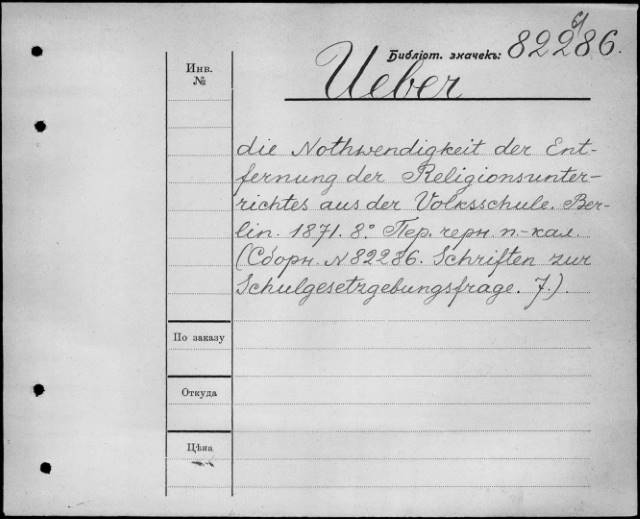 Библіот. значекъ: 82286.
Инв.
№
Ueber
die Nothwendigkeit der Ent-
fernung der Religionsunter-
richtes aus der Volksschule. Ber-
lin. 1871. 8.° Пер. черн. п.-кал.
(Сборн. N 82286. Schriften zur
Schulgesetzgebungsfrage. 7.).
По заказу
Откуда
Цѣна